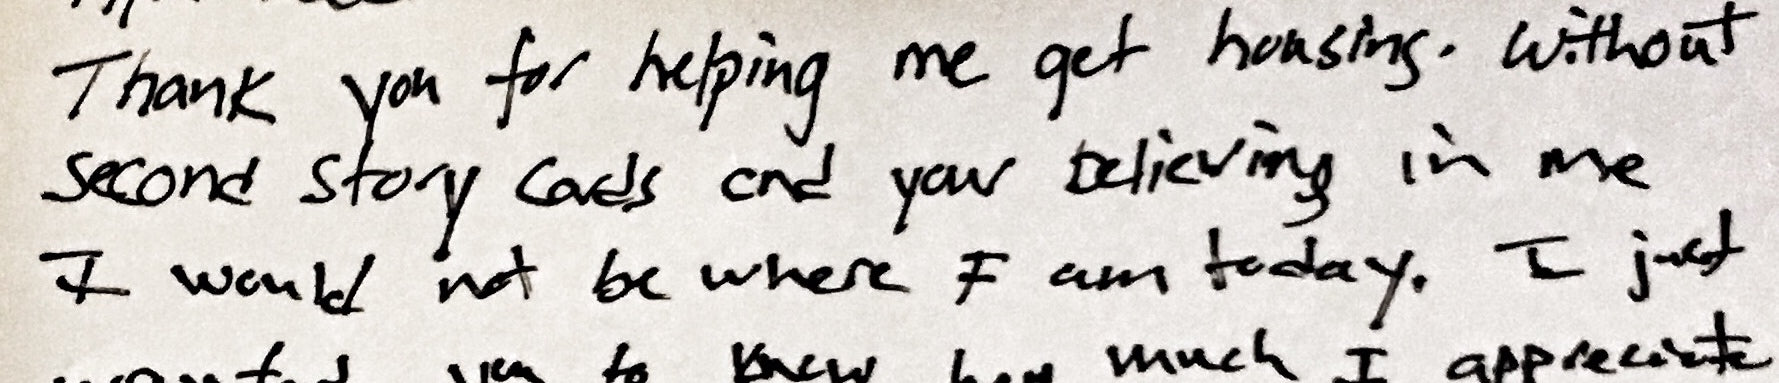 Thank you for helping me get housing. Without
second story Cards and your believing in me
I would not be where I am today. I just
wanted you to know how much I appreciate